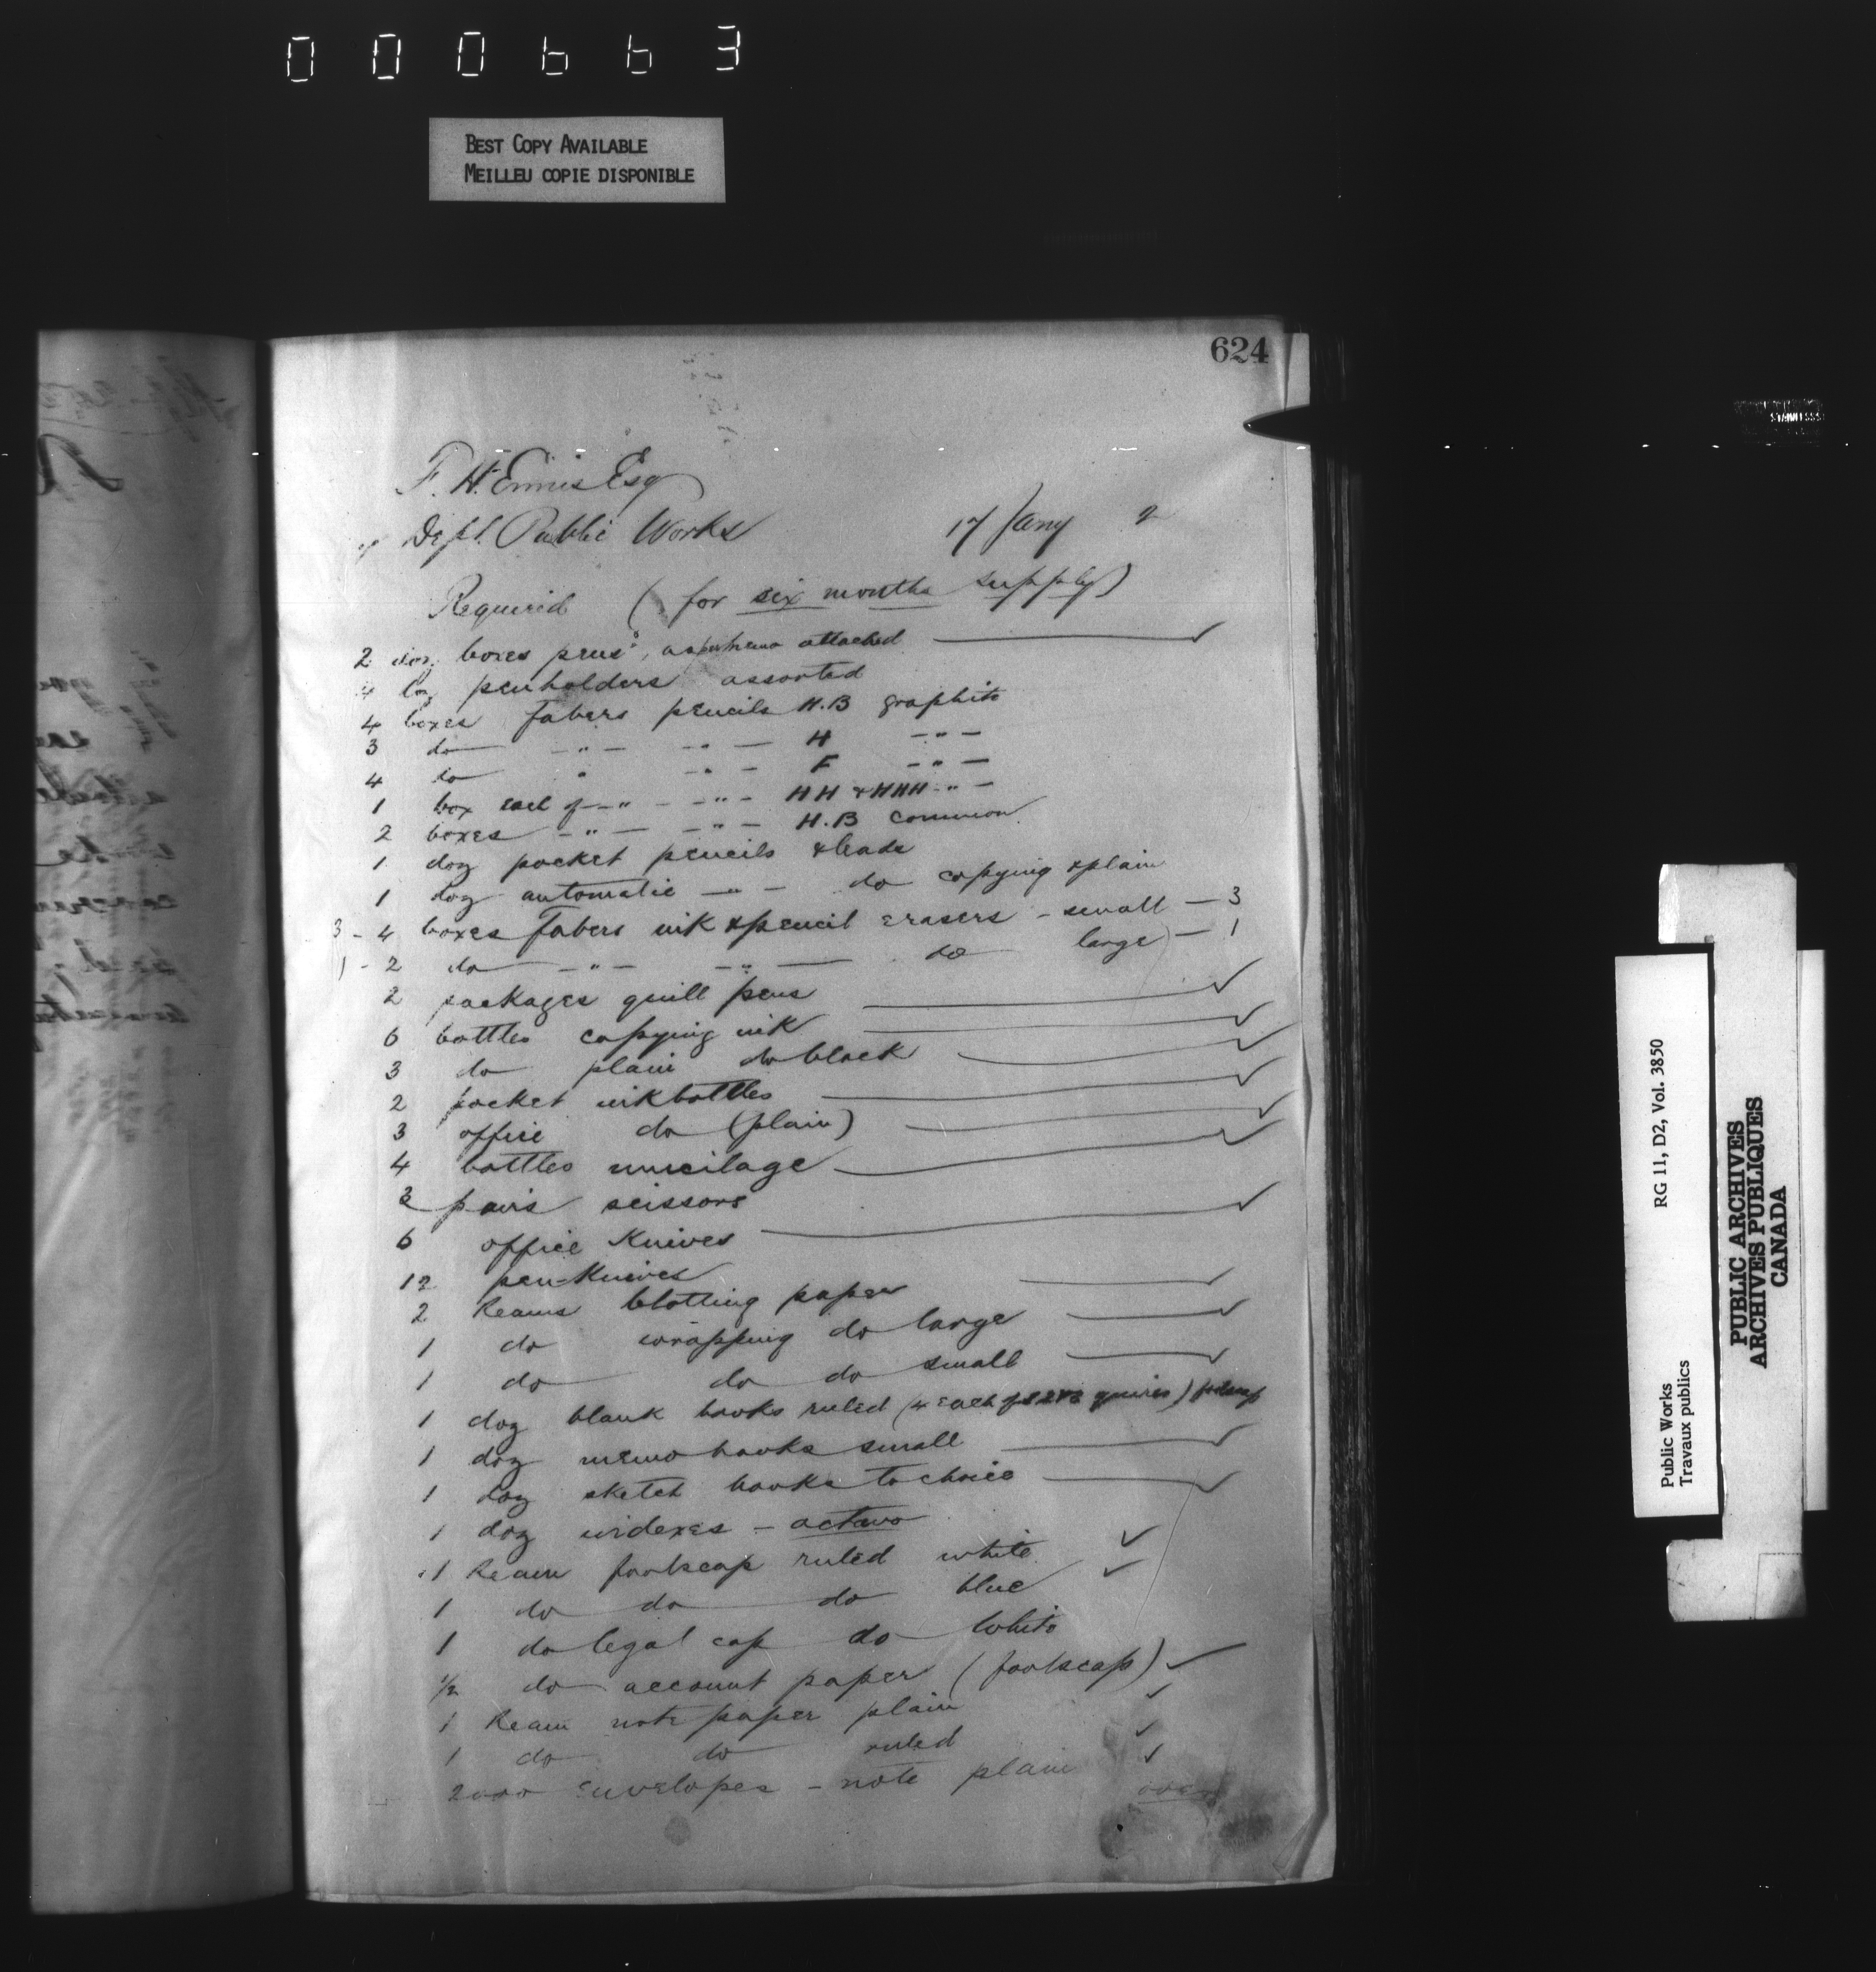 000663
BEST COPY AVAILABLE
MEILLEU COPIE DISPONIBLE
624
F. H. Ennis Esq
Dept. Public Works 17 Jany 2
Required (for six months supply)
2 doz boxes pens, as specimens attached ✓
4 doz penholders assorted
4 boxes Fabers pencils H.B graphite
3 do " " H "
4 do " " F "
1 box each of " " HH & HHH "
2 boxes " " H.B common
1 doz pocket pencils & leads
1 doz automatic " do copying & plain
3 - 4 boxes Fabers ink & pencil erasers - small - 3
1 - 2 do " " do large - 1
2 packages quill pens ✓
6 bottles copying ink ✓
3 do plain do black ✓
2 pocket ink bottles ✓
3 office do (plain) ✓
4 bottles mucilage ✓
pairs scissors
6 office knives ✓
12 pen-knives
2 Reams blotting paper ✓
1 do wrapping do large ✓
1 do do do small ✓
1 doz blank books ruled (4 each of quires) foolscap
1 doz memo books small ✓
1 doz sketch books to choice ✓
1 doz indexes - octavo
1 Ream foolscap ruled white ✓
1 do do do blue ✓
1 do legal cap do white
1/2 do account paper (foolscap) ✓
1 Ream note paper plain ✓
1 do do ruled ✓
2000 envelopes - note plain ✓
over
Public Works
Travaux publics
RG 11, D2, Vol. 3850
PUBLIC ARCHIVES
ARCHIVES PUBLIQUES
CANADA